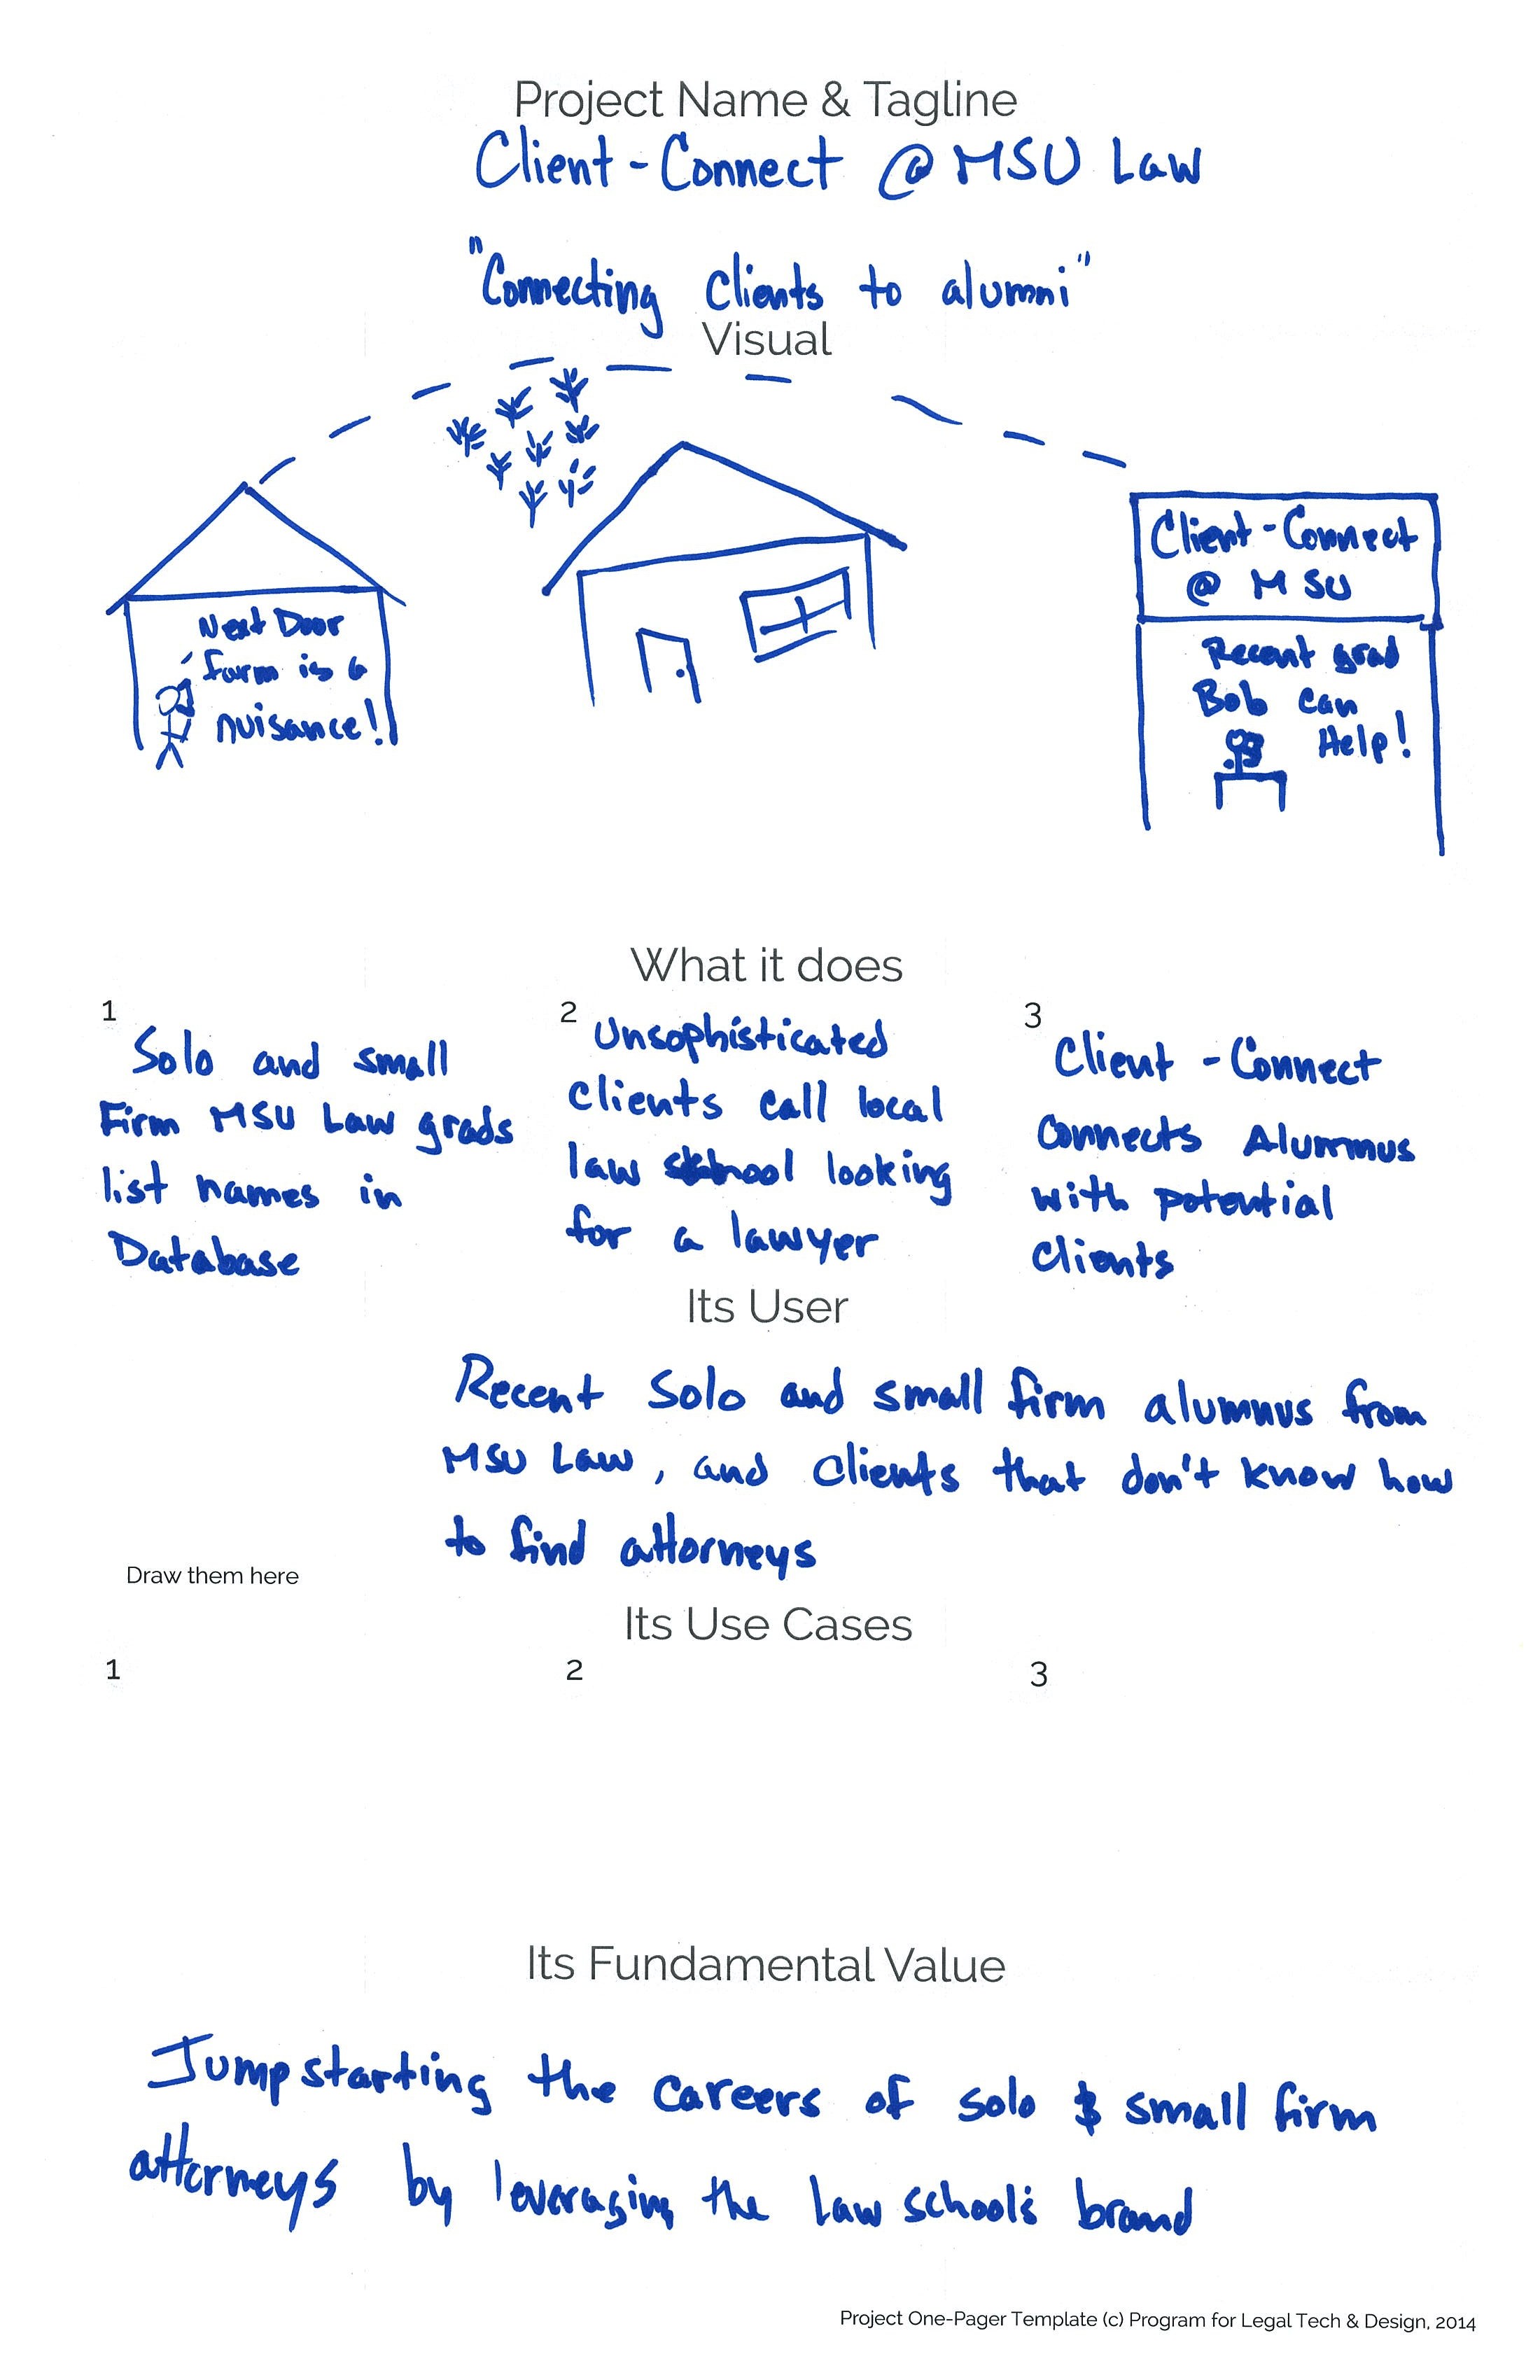 Project Name & Tagline
Client-Connect @ MSU Law
"Connecting clients to alumni"
Visual
Next Door
farm is a
nuisance!
Client-Connect
@ MSU
Recent grad
Bob can
Help!
What it does
1
Solo and small
Firm MSU Law grads
list names in
Database
2
Unsophisticated
clients call local
law school looking
for a lawyer
3
Client-Connect
connects Alumnus
with potential
clients
Its User
Recent solo and small firm alumnus from
MSU Law, and clients that don't know how
to find attorneys
Draw them here
Its Use Cases
1
2
3
Its Fundamental Value
Jumpstarting the careers of solo & small firm
attorneys by leveraging the law school's brand
Project One-Pager Template (c) Program for Legal Tech & Design, 2014